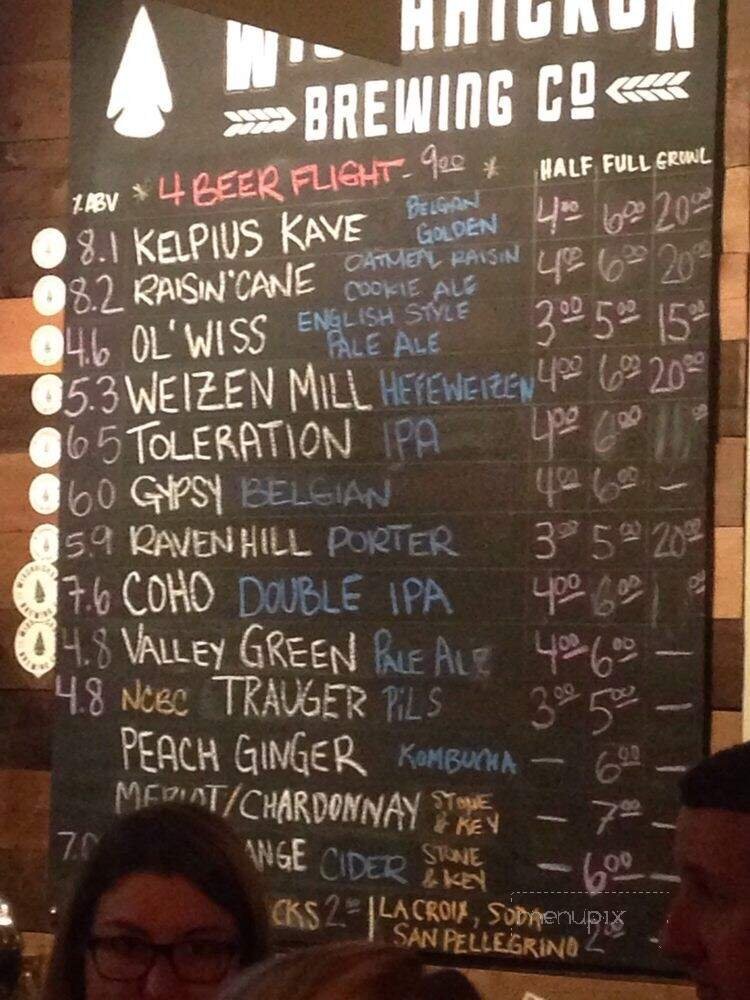 BREWING CO
% ABV * 4 BEER FLIGHT - 9.00 * HALF FULL GROWL
8.1 KELPIUS KAVE BELGIAN GOLDEN 4.00 6.00 20.00
8.2 RAISIN'CANE OATMEAL RAISIN COOKIE ALE 4.00 6.00 20.00
4.6 OL'WISS ENGLISH STYLE PALE ALE 3.00 5.00 15.00
5.3 WEIZEN MILL HEFEWEIZEN 4.00 6.00 20.00
6.5 TOLERATION IPA 4.00 6.00
6.0 GYPSY BELGIAN 4.00 6.00 —
5.9 RAVENHILL PORTER 3.00 5.00 20.00
7.6 COHO DOUBLE IPA 4.00 6.00
4.8 VALLEY GREEN PALE ALE 4.00 6.00 —
4.8 NCBC TRAUGER PILS 3.00 5.00 —
PEACH GINGER KOMBUCHA — 6.00 —
MERLOT/CHARDONNAY STONE & KEY — 7.00 —
CIDER STONE & KEY — 6.00
LACROIX, SODA
SAN PELLEGRINO 2.00
menupix